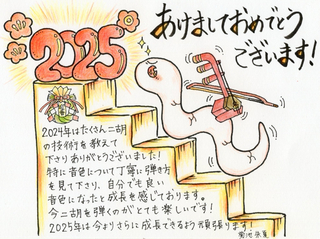 2025
あけましておめでとう
ございます!
2024年はたくさん二胡
の技術を教えて
下さりありがとうございました!
特に音色について丁寧に弾き方
を見て下さり、自分でも良い
音色になったと成長を感じております。
今二胡を弾くのがとても楽しいです!
2025年は今よりさらに成長できるよう頑張ります!